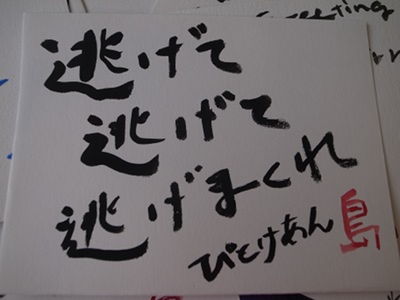 逃げて
逃げて
逃げまくれ
びとけあん 島
eeting